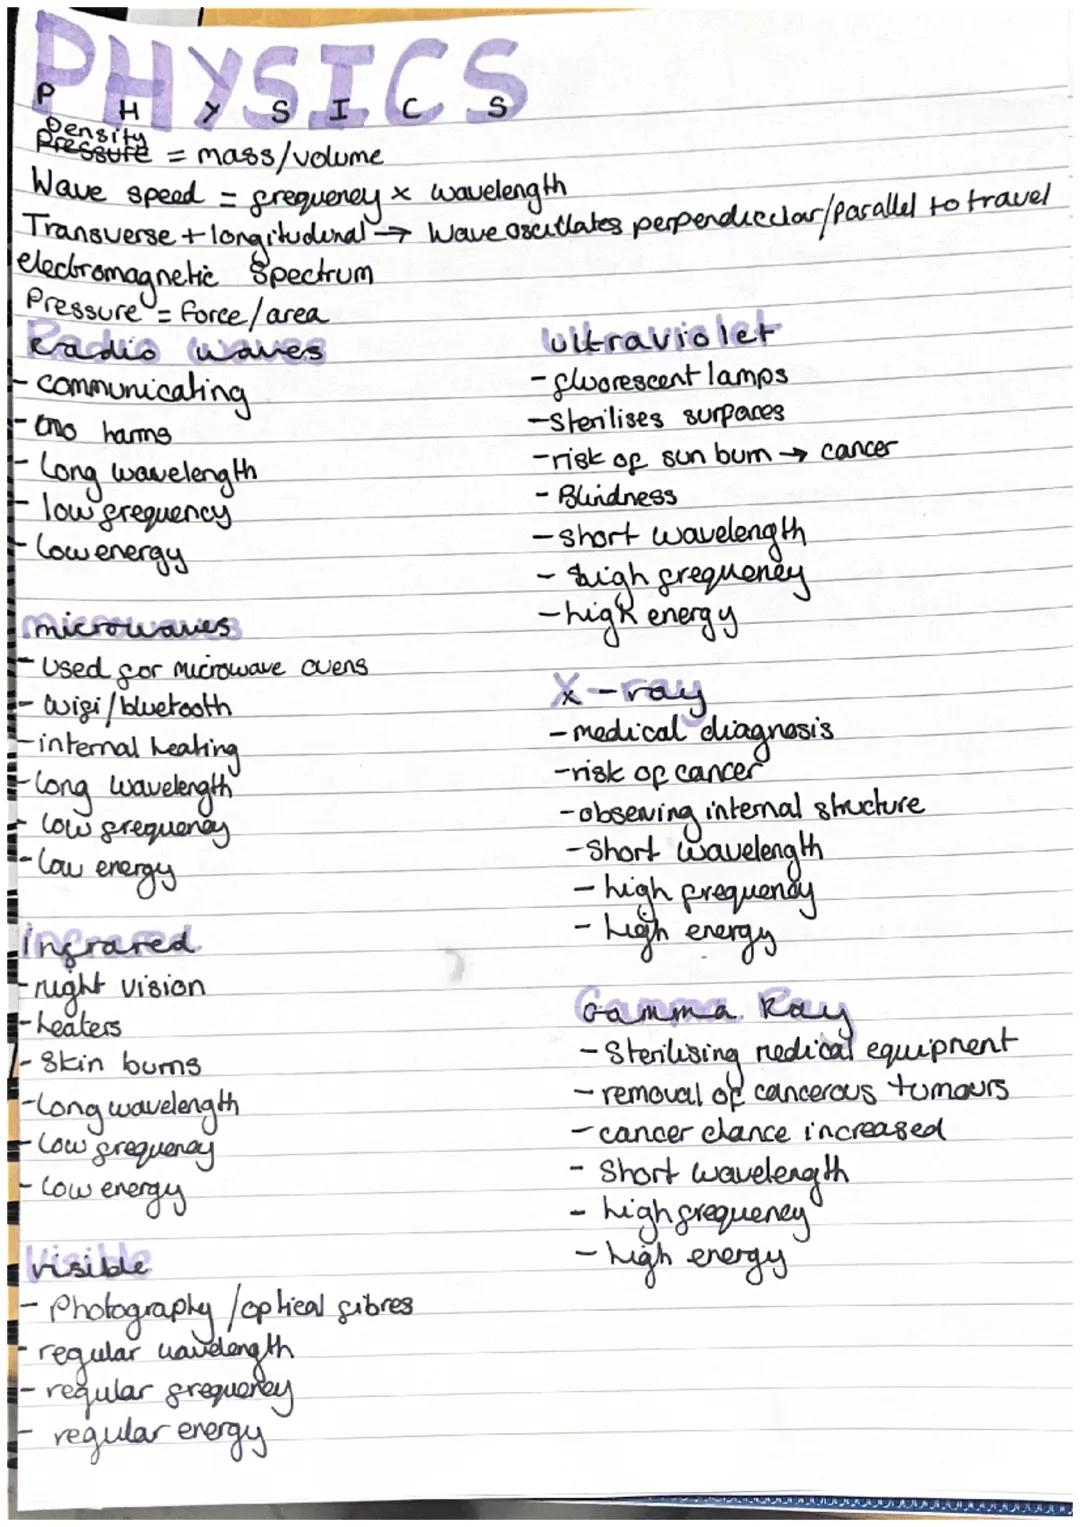 PHYSICS
P H Y S I C S
Density
Pressure = mass/volume
Wave speed = frequency × wavelength
Transverse + longitudinal → Wave oscillates perpendicular/parallel to travel
electromagnetic Spectrum
Pressure = force/area
Radio waves
- communicating
- no harms
- Long wavelength
- low frequency
- Low energy
microwaves
- Used for microwave ovens
- wifi/bluetooth
- internal heating
- long wavelength
- low frequency
- low energy
infrared
- night vision
- heaters
- Skin burns
- Long wavelength
- Low frequency
- Low energy
Visible
- Photography/optical fibres
- regular wavelength
- regular frequency
- regular energy
Ultraviolet
- fluorescent lamps
- Sterilises surfaces
- risk of sun burn → cancer
- Blindness
- short wavelength
- high frequency
- high energy
X-ray
- medical diagnosis
- risk of cancer
- observing internal structure
- Short wavelength
- high frequency
- high energy
Gamma Ray
- Sterilising medical equipment
- removal of cancerous tumours
- cancer chance increased
- Short wavelength
- high frequency
- high energy